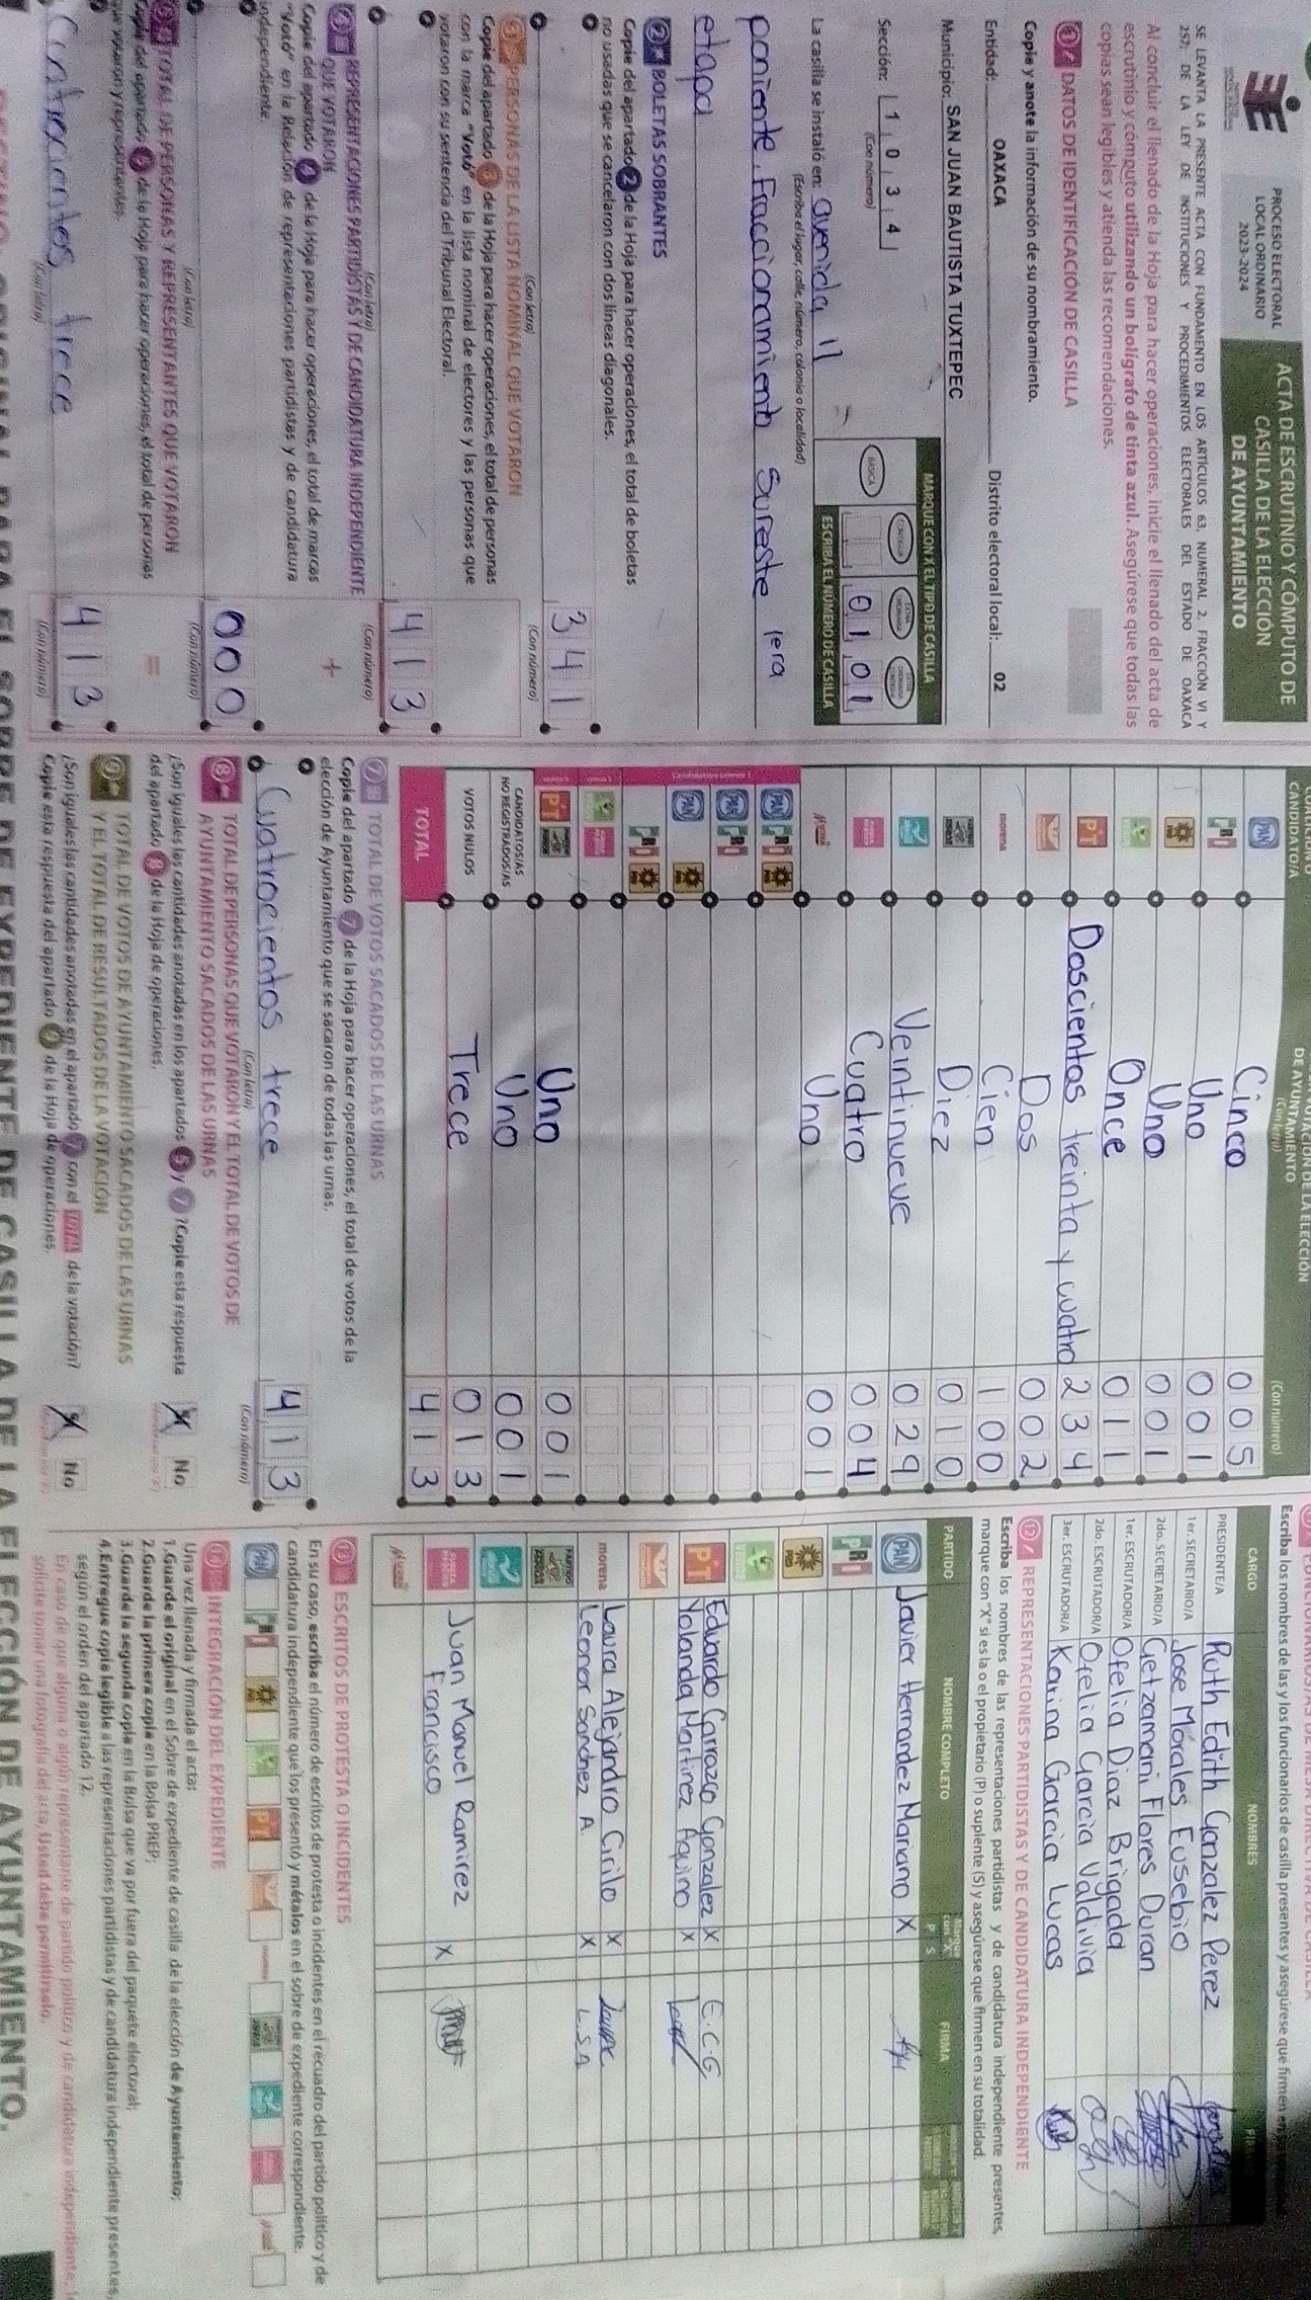 PROCESO ELECTORAL
LOCAL ORDINARIO
2023-2024
ACTA DE ESCRUTINIO Y CÓMPUTO DE
CASILLA DE LA ELECCIÓN
DE AYUNTAMIENTO
SE LEVANTA LA PRESENTE ACTA CON FUNDAMENTO EN LOS ARTÍCULOS 63, NUMERAL 2, FRACCIÓN VI Y
257, DE LA LEY DE INSTITUCIONES Y PROCEDIMIENTOS ELECTORALES DEL ESTADO DE OAXACA
Al concluir el llenado de la Hoja para hacer operaciones, inicie el llenado del acta de
escrutinio y cómputo utilizando un bolígrafo de tinta azul. Asegúrese que todas las
copias sean legibles y atienda las recomendaciones.
1 DATOS DE IDENTIFICACIÓN DE CASILLA
Copie y anote la información de su nombramiento.
Entidad: OAXACA Distrito electoral local: 02
Municipio: SAN JUAN BAUTISTA TUXTEPEC
Sección: 1 0 3 4
(Con número)
MARQUE CON X EL TIPO DE CASILLA
BÁSICA
0 1 0 1
ESCRIBA EL NÚMERO DE CASILLA
La casilla se instaló en: avenida 11
(Escriba el lugar, calle, número, colonia o localidad)
poniente, Fraccionamiento Sureste 1era
etapa
2 BOLETAS SOBRANTES
Copie del apartado 2 de la Hoja para hacer operaciones, el total de boletas
no usadas que se cancelaron con dos líneas diagonales.
3 4 1
(Con letra) (Con número)
3 PERSONAS DE LA LISTA NOMINAL QUE VOTARON
Copie del apartado 3 de la Hoja para hacer operaciones, el total de personas
con la marca "Votó" en la lista nominal de electores y las personas que
votaron con su sentencia del Tribunal Electoral.
4 1 3
(Con letra) (Con número)
4 REPRESENTACIONES PARTIDISTAS Y DE CANDIDATURA INDEPENDIENTE
QUE VOTARON
+
Copie del apartado 4 de la Hoja para hacer operaciones, el total de marcas
"Votó" en la Relación de representaciones partidistas y de candidatura
independiente.
0 0 0
(Con letra) (Con número)
TOTAL DE PERSONAS Y REPRESENTANTES QUE VOTARON
=
Copie del apartado 5 de la Hoja para hacer operaciones, el total de personas
que votaron y representantes.
Cuatrocientos trece 4 1 3
(Con letra) (Con número)
CANDIDATO/A
DE AYUNTAMIENTO
(Con letra)
(Con número)
PAN Cinco 0 0 5
PRI Uno 0 0 1
PRD Uno 0 0 1
Once 0 1 1
PT Doscientos treinta y cuatro 2 3 4
Dos 0 0 2
morena Cien 1 0 0
Diez 0 1 0
Veintinueve 0 2 9
Cuatro 0 0 4
Uno 0 0 1
PAN PRI PRD
PAN PRI
PAN PRD
PRI PRD
PT Uno 0 0 1
CANDIDATOS/AS
NO REGISTRADOS/AS Uno 0 0 1
VOTOS NULOS Trece 0 1 3
TOTAL 4 1 3
7 TOTAL DE VOTOS SACADOS DE LAS URNAS
Copie del apartado 7 de la Hoja para hacer operaciones, el total de votos de la
elección de Ayuntamiento que se sacaron de todas las urnas.
Cuatrocientos trece 4 1 3
(Con letra) (Con número)
8 TOTAL DE PERSONAS QUE VOTARON Y EL TOTAL DE VOTOS DE
AYUNTAMIENTO SACADOS DE LAS URNAS
¿Son iguales las cantidades anotadas en los apartados 5 y 7 ? Copie esta respuesta
del apartado 8 de la Hoja de operaciones.
X No
9 TOTAL DE VOTOS DE AYUNTAMIENTO SACADOS DE LAS URNAS
Y EL TOTAL DE RESULTADOS DE LA VOTACIÓN
¿Son iguales las cantidades anotadas en el apartado 7 con el TOTAL de la votación?
Copie esta respuesta del apartado 9 de la Hoja de operaciones.
X No
Escriba los nombres de las y los funcionarios de casilla presentes y asegúrese que firmen
CARGO NOMBRES
PRESIDENTE/A Ruth Edith Gonzalez Perez
1er. SECRETARIO/A Jose Morales Eusebio
2do. SECRETARIO/A Getzamani Flores Duran
1er. ESCRUTADOR/A Ofelia Diaz Brigada
2do. ESCRUTADOR/A Ofelia Garcia Valdivia
3er. ESCRUTADOR/A Karina Garcia Lucas
12 REPRESENTACIONES PARTIDISTAS Y DE CANDIDATURA INDEPENDIENTE
Escriba los nombres de las representaciones partidistas y de candidatura independiente presentes,
marque con "X" si es la o el propietario (P) o suplente (S) y asegúrese que firmen en su totalidad.
PARTIDO NOMBRE COMPLETO Marque con "X" P S FIRMA
PAN Javier Hernandez Mariano X
PRI
PRD
PT Eduardo Carrazco Gonzalez X E.C.G
Yolanda Martinez Aquino X
morena Laura Alejandro Cirilo X
Leonor Sanchez A. X L.S.A
Juan Manuel Ramirez X
Francisco
13 ESCRITOS DE PROTESTA O INCIDENTES
En su caso, escriba el número de escritos de protesta o incidentes en el recuadro del partido político y de
candidatura independiente que los presentó y métalos en el sobre de expediente correspondiente.
PAN PRI PRD PT
14 INTEGRACIÓN DEL EXPEDIENTE
Una vez llenada y firmada el acta:
1.Guarde el original en el Sobre de expediente de casilla de la elección de Ayuntamiento;
2.Guarde la primera copia en la Bolsa PREP;
3.Guarde la segunda copia en la Bolsa que va por fuera del paquete electoral;
4.Entregue copia legible a las representaciones partidistas y de candidatura independiente presentes,
según el orden del apartado 12.
En caso de que alguna o algún representante de partido político y de candidatura independiente,
solicite tomar una fotografía del acta, Usted debe permitírselo.
ORIGINAL PARA EL SOBRE DE EXPEDIENTE DE CASILLA DE LA ELECCIÓN DE AYUNTAMIENTO.